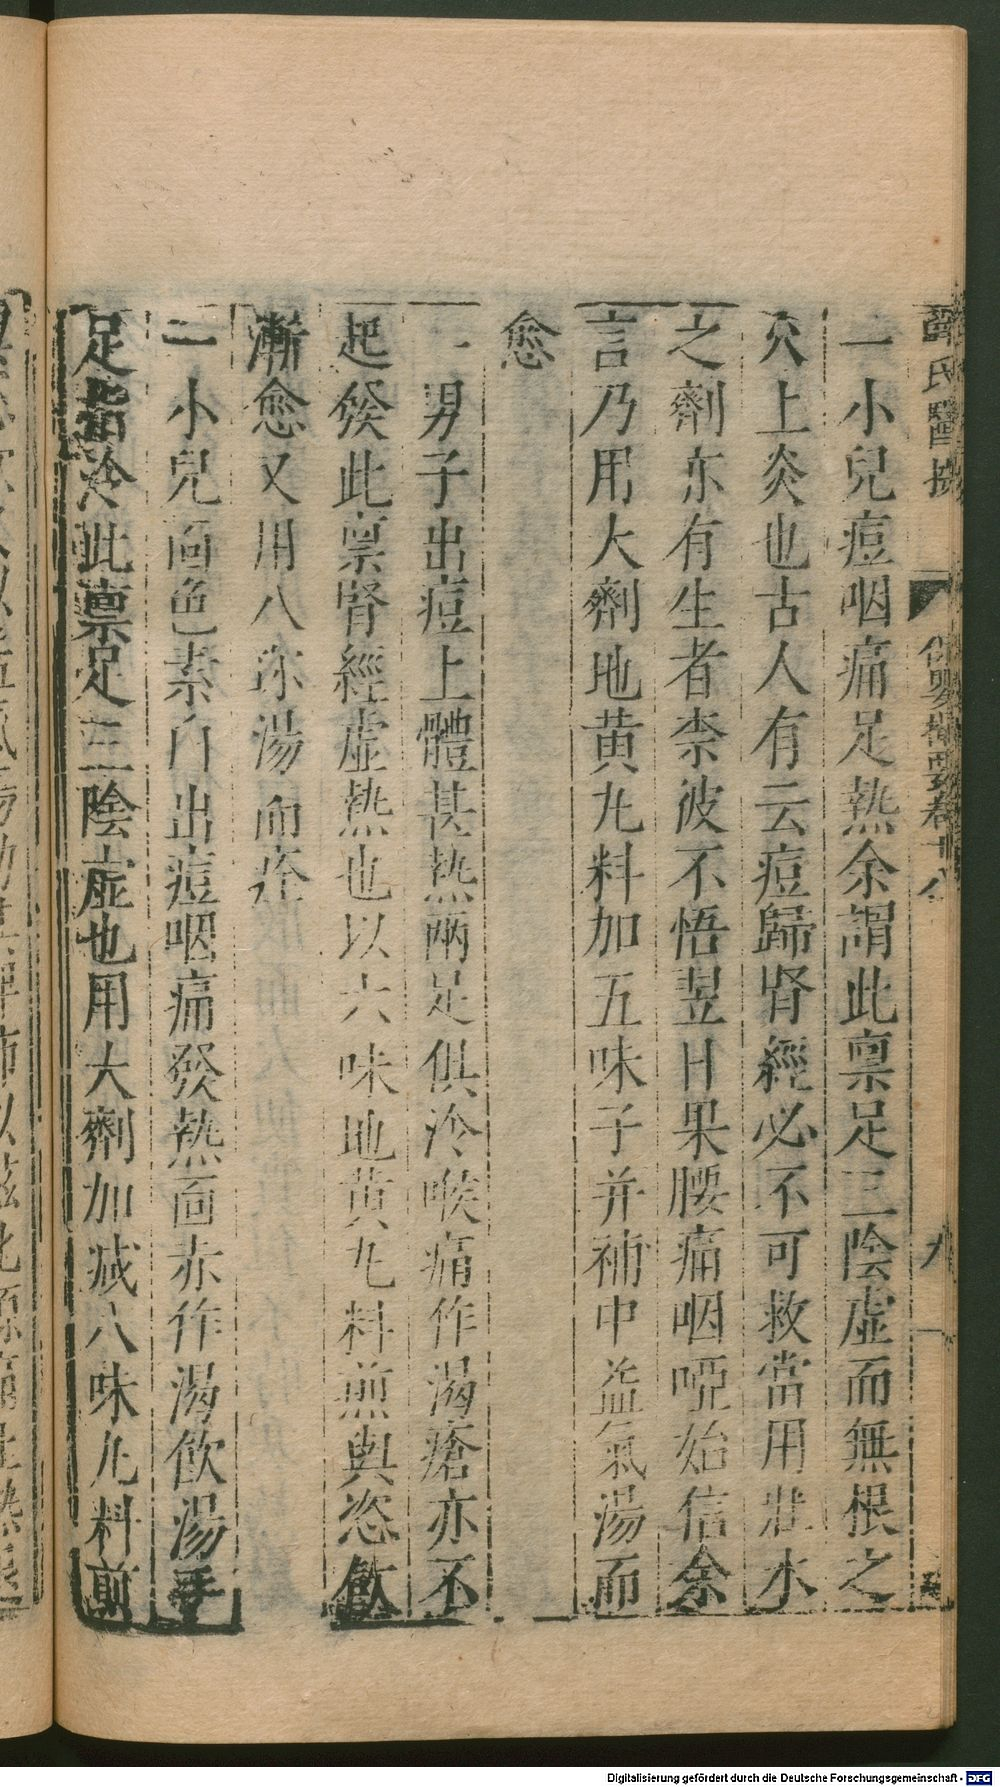 薛氏醫按 保嬰撮要卷十八 九
一小兒痘咽痛足熱余謂此禀足三陰虛而無根之
火上炎也古人有云痘歸腎經必不可救當用壯水
之劑亦有生者柰彼不悟翌日果腰痛咽啞始信余
言乃用大劑地黄丸料加五味子并補中益氣湯而
愈
一男子出痘上體甚熱兩足俱冷喉痛作渴瘡亦不
起發此禀腎經虛熱也以六味地黄丸料煎與恣飲
漸愈又用八珍湯而痊
一小兒面色素白出痘咽痛發熱面赤作渴飲湯手
足指冷此禀足三陰虛也用大劑加减八味丸料煎
Digitalisierung gefördert durch die Deutsche Forschungsgemeinschaft - DFG